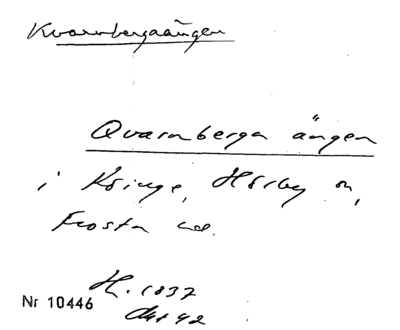 Kvarnbergaängen
Qvarnberga ängen
i Kringe, Hörby sn,
Frosta hd.
H. 1837
Nr 10446
Akt 42